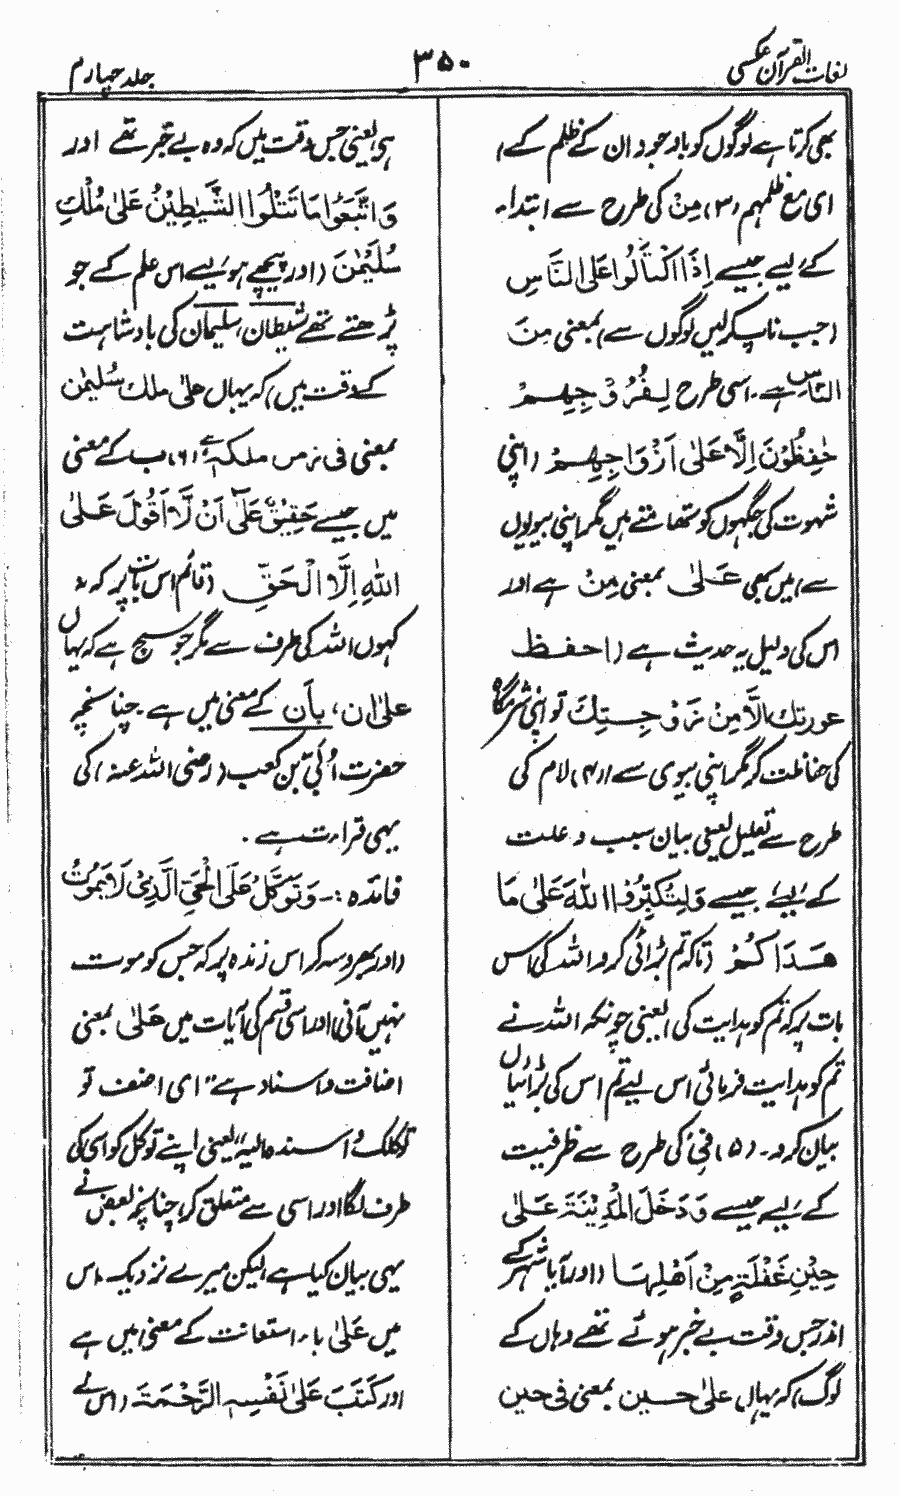 لغات القرآن عکسی
۳۵۰
جلد چہارم
بھی کرتا ہے لوگوں کو باوجود ان کے ظلم کے،
ای مع ظلمہم (۳) مِنْ کی طرح سے ابتداء
کے لیے جیسے اِذَا اکْتَالُوا عَلَى النَّاسِ
(جب ناپ کر لیں لوگوں سے) بمعنی مِنَ
النَّاسِ ہے۔ اسی طرح لِفُرُوْجِهِمْ
حٰفِظُوْنَ اِلَّا عَلٰى اَزْوَاجِهِمْ (اپنی
شہوت کی جگہوں کو تھامتے ہیں مگر اپنی بیویوں
سے) میں بھی عَلٰى بمعنی مِنْ ہے اور
اس کی دلیل یہ حدیث ہے (احفظ
عورتك الَّا مِنْ زَوْجِتِكَ تو اپنی شرمگاہ
کی حفاظت کر مگر اپنی بیوی سے (۴) لام کی
طرح سے تعلیل یعنی بیان سبب و علت
کے لیے، جیسے وَلِتُكَبِّرُوا اللّٰهَ عَلٰى مَا
هَدَاكُمْ (تاکہ تم بڑائی کرو اللہ کی اس
بات پر کہ تم کو ہدایت کی) یعنی چونکہ اللہ نے
تم کو ہدایت فرمائی اس لیے تم اس کی بڑائیاں
بیان کرو۔ (۵) فِیْ کی طرح سے ظرفیت
کے لیے جیسے وَدَخَلَ الْمَدِيْنَةَ عَلٰى
حِيْنِ غَفْلَةٍ مِنْ اَهْلِهَا (اور آیا شہر کے
اندر جس وقت بے خبر ہوئے تھے وہاں کے
لوگ) کہ یہاں علیٰ حسین بمعنی فی حین
ہی یعنی جس وقت میں کہ وہ بے خبر تھے اور
وَاتَّبَعُوْا مَا تَتْلُوا الشَّيٰطِيْنُ عَلٰى مُلْكِ
سُلَيْمٰنَ (اور پیچھے ہو لیے اس علم کے جو
پڑھتے تھے شیطان، سلیمان کی بادشاہت
کے وقت میں) کہ یہاں علیٰ ملك سُليمٰن
بمعنی فی زمن ملکہ ہے، (۶) ب کے معنی
میں جیسے حَقِيْقٌ عَلٰى اَنْ لَّا اَقُوْلَ عَلَى
اللّٰهِ اِلَّا الْحَقَّ (قائم اس بات پر کہ نہ
کہوں اللہ کی طرف سے مگر جو سچ ہے کہ یہاں
علیٰ ان، بِاَن کے معنی میں ہے۔ چنانچہ
حضرت اُبَیّ بن کعب (رضی اللہ عنہ) کی
یہی قراءت ہے۔
فائدہ :۔ وَتَوَكَّلْ عَلَى الْحَيِّ الَّذِيْ لَا يَمُوْتُ
(اور بھروسہ کر اس زندہ پر کہ جس کو موت
نہیں آنی) اور اسی قسم کی آیات میں عَلٰى بمعنی
اضافت و اسناد ہے" ای اضف تو
كلك و اسنده الیه" یعنی اپنے توکل کو اسی کی
طرف لگا اور اسی سے متعلق کر، چنانچہ بعض نے
یہی بیان کیا ہے، لیکن میرے نزدیک، اس
میں عَلٰى باء استعانت کے معنی میں ہے
اور كَتَبَ عَلٰى نَفْسِهِ الرَّحْمَةَ (اس نے